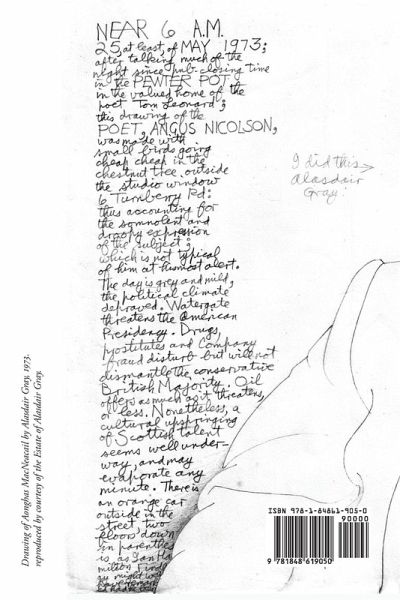 NEAR 6 A.M.
25, at least, of MAY 1973;
after talking much of the
night since pub-closing time
in the PEWTER POT;
in the valued home of the
poet Tom Leonard;
this drawing of the
POET, ANGUS NICOLSON,
was made with
small birds going
cheap cheap in the
chestnut tree outside
the studio window
6 Turnberry Rd:
thus accounting for
the somnolent and
droopy expression
of the subject:
which is not typical
of him at his most alert.
The day is grey and mild,
the political climate
depraved. Watergate
threatens the American
Presidency. Drugs,
prostitutes and Company
fraud disturb but will not
dismantle the conservative
British Majority. Oil
offers as much as it threatens,
or less. Nonetheless, a
cultural upspringing
of Scottish talent
seems well under-
way, and may
evaporate any
minute. There is
an orange car
outside in the
street, two
floors down
in
is, as Ian
I did this →
Alasdair
Gray!
Drawing of Aonghas MacNeacail by Alasdair Gray, 1973.
reproduced by courtesy of the Estate of Alasdair Gray.
ISBN 978-1-84861-905-0
90000
9 781848 619050